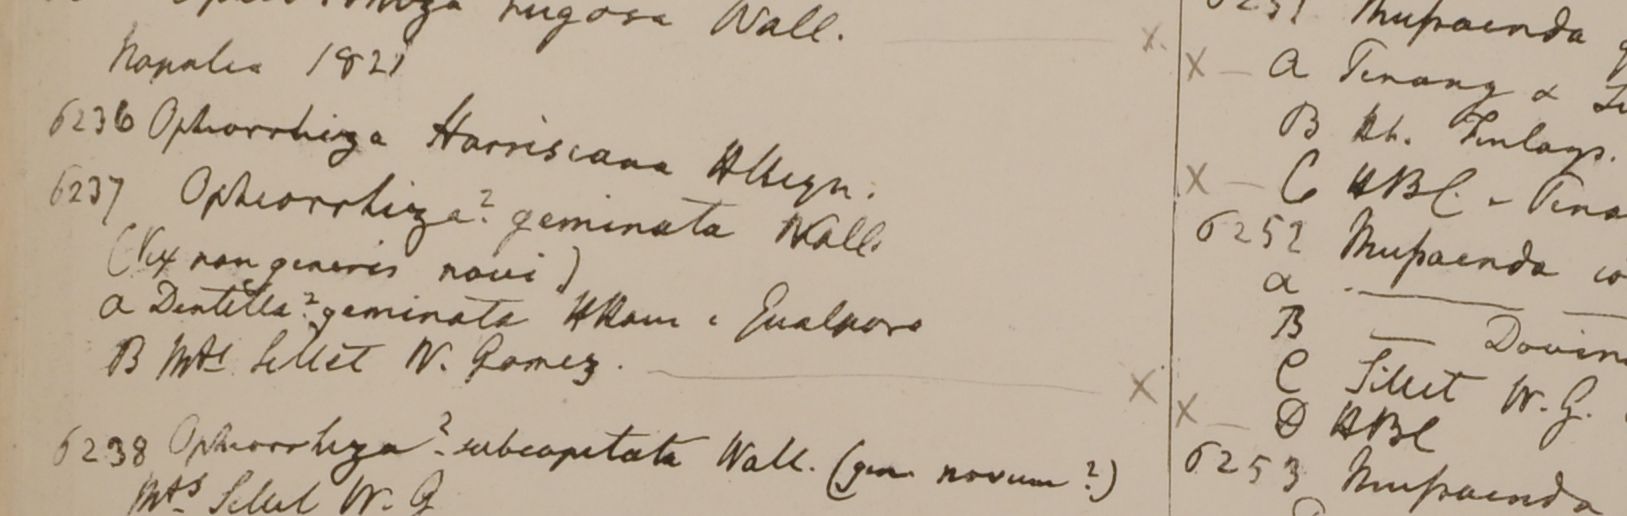 Ophiorrhiza rugosa Wall. x.
Napalia 1821
6236 Ophiorrhiza Harrisiana HHeyn.
6237 Ophiorrhiza? geminata Wall.
(Vix non generis novi)
a Dentella? geminata HRox e Gualpara
B Mts Sillet W. Gomez. x
6238 Ophiorrhiza? subcapitata Wall. (gen novum?)
Mts Sillet W. G
6251 Mussaenda
x — a Penang &
B Hb. Finlays.
x — C HBC.
6252 Mussaenda
a
B —
C Sillet W. G.
x — D HBC
6253 Mussaenda